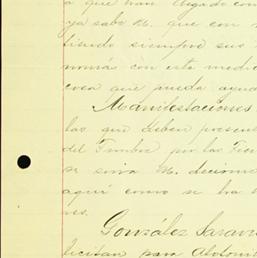 a que han llegado con
ya sabe U. que con
tiendo siempre sus
nomía con este medio
crea que pueda ayuda
Manifestaciones
las que deben presen
del Timbre por las Tier
se sirva U. decirme
aquí como se ha
res.
González Saravi
licitan para Abtoni